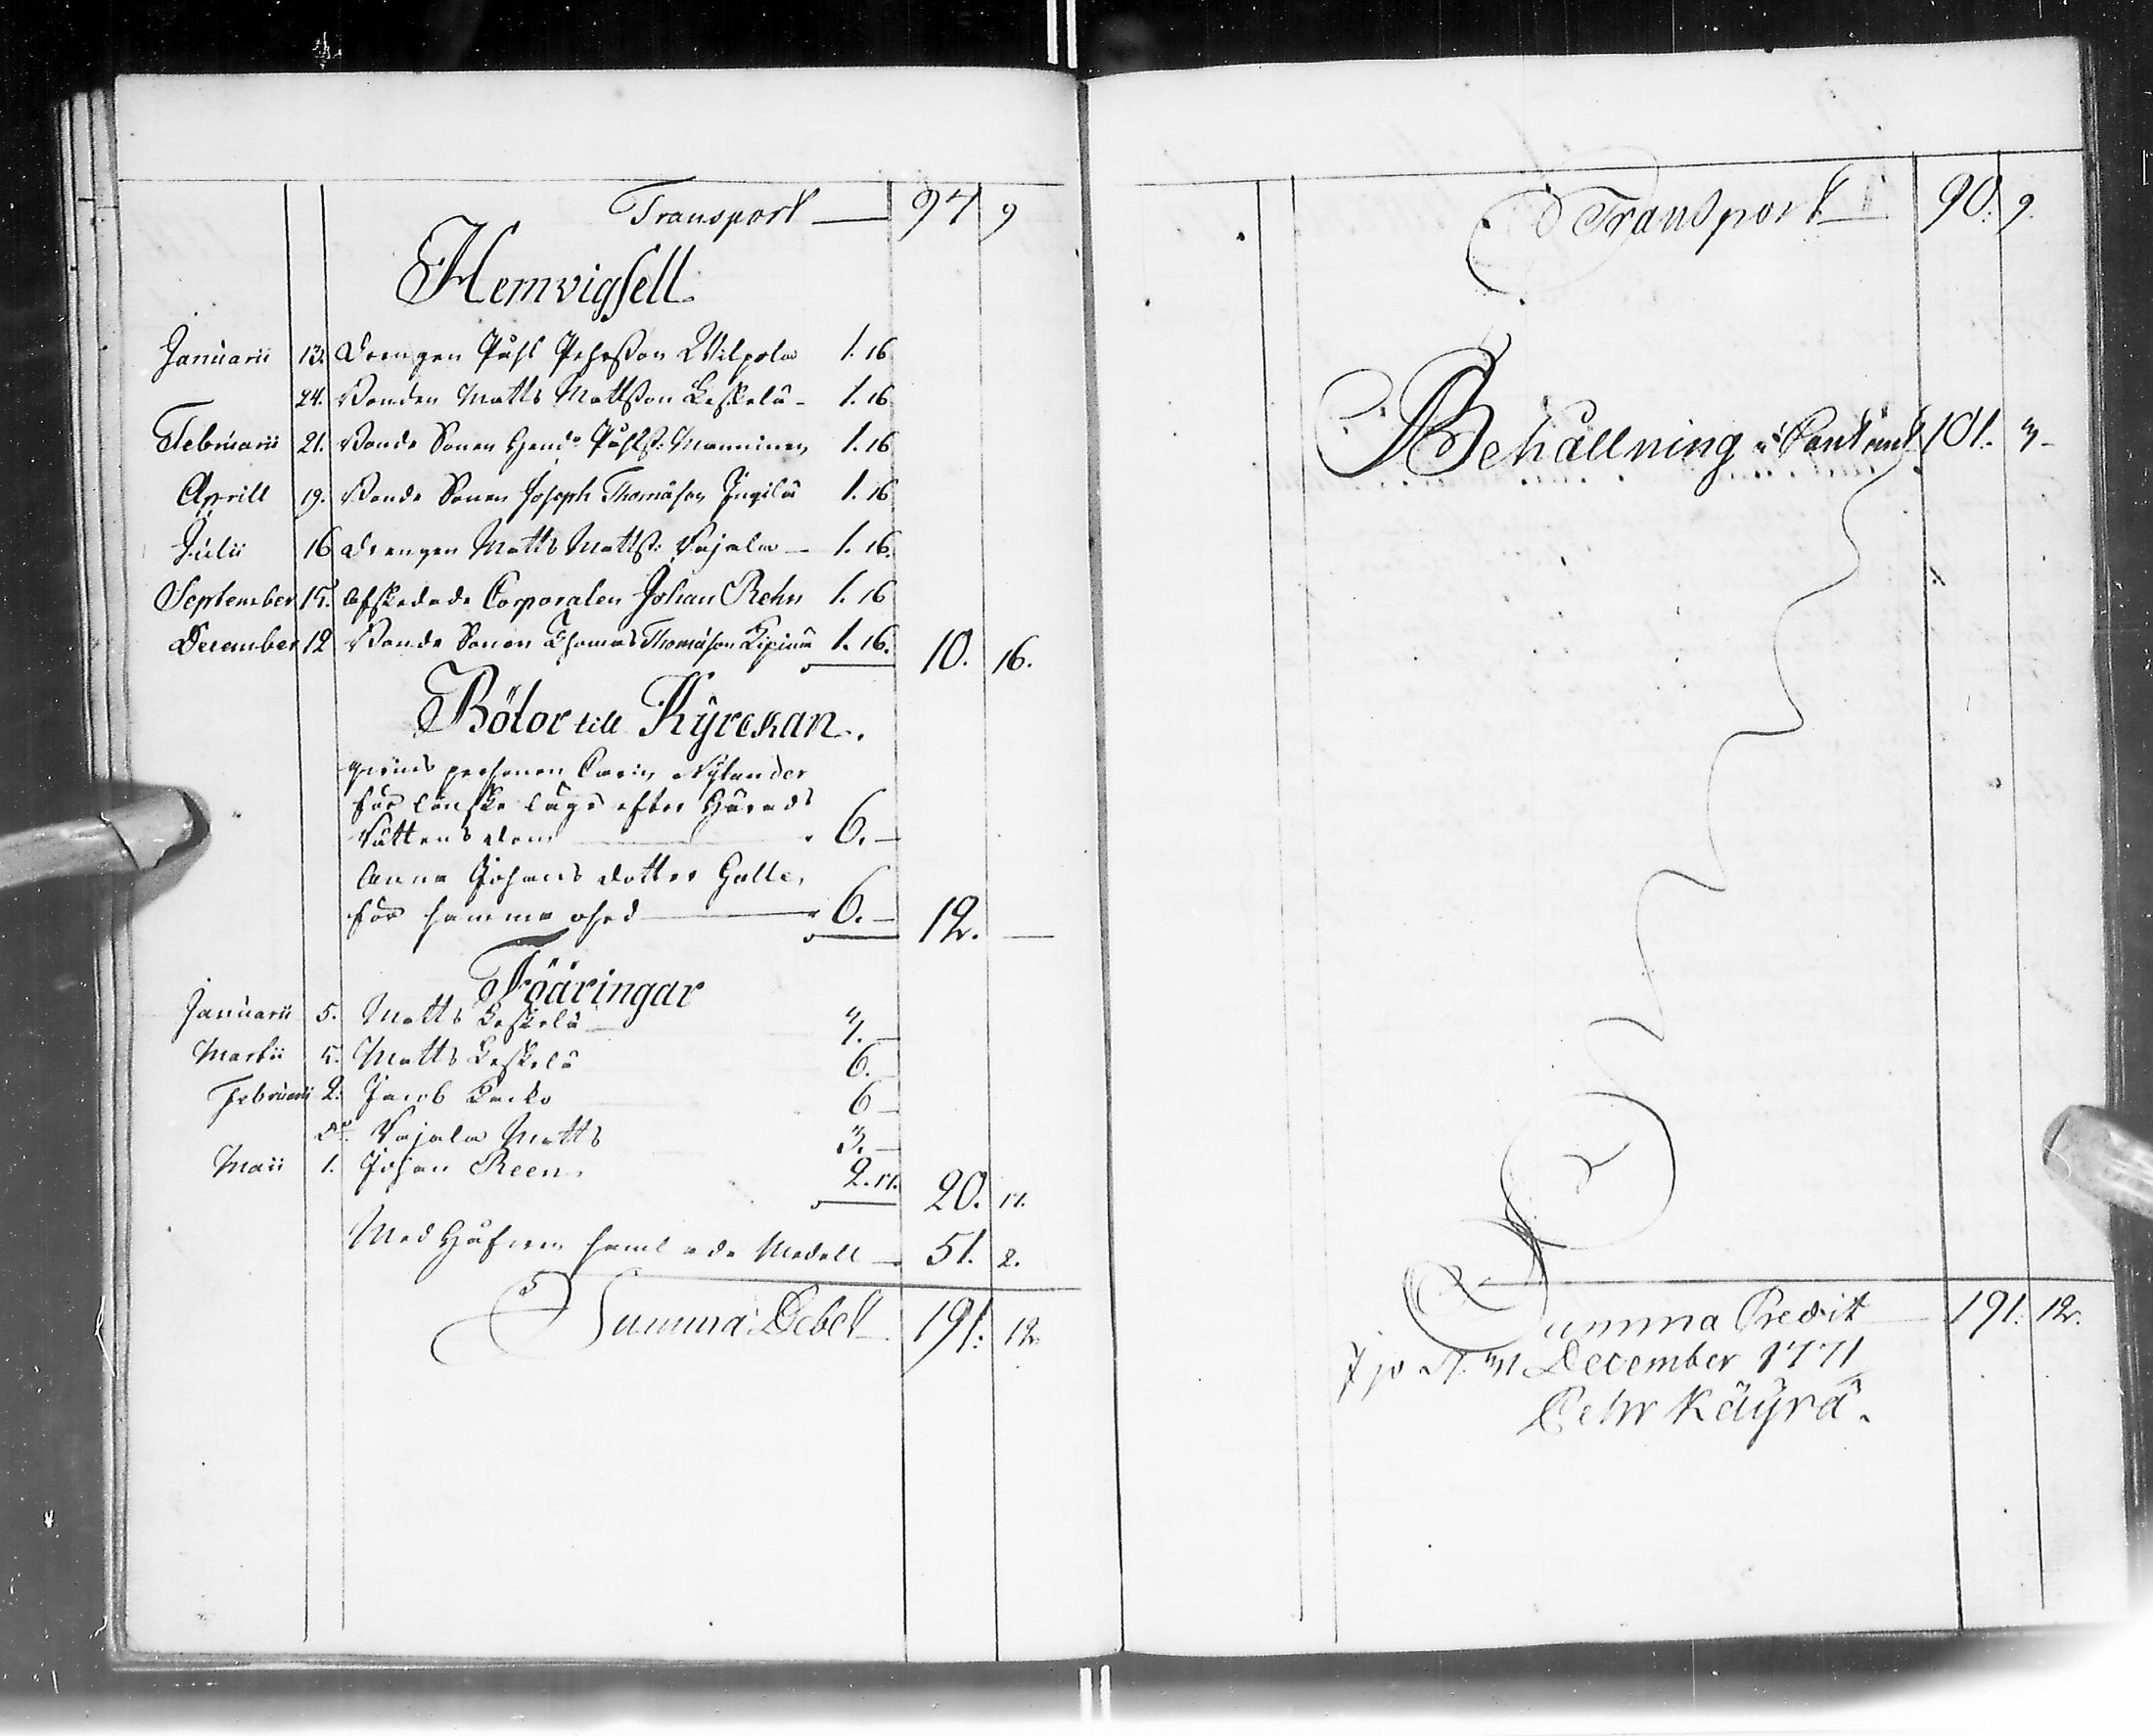 Transport — 97 9
Hemvigsell.
Januarii 13. Drengen Påhl Pehrsson Wilpola 1. 16
24. Bonden Matts Mattsson Leskelä - 1. 16
Februarii 21. Bonde Sonen Hend: Påhlss: Manninen 1. 16
Aprill 19. Bonde Sonen Joseph Thomäson Ingilä 1. 16
Julii 16 Drengen Matts Mattss: Vajala - 1. 16.
September 15. Afskedade Corporalen Johan Rehn 1. 16
December 12 Bonde Sonen Thomas Thomäson Kipinä 1. 16. 10. 16.
Böter till Kyrckan.
qvinds personen Carin Nylander
för lönske läge efter Härads
Rättens dom — 6. —
Anna Johans dotter Galle,
för samma ohed — 6. — 12. —
Fööringar
Januarii 5. Matts Leskelä — 3. —
Martii 5. Matts Leskelä 6. —
Februarii 2. Jacob 6 —
do. Vajala Matts 3. —
Maii 1. Johan Reen. 2. 17. 20. 17.
Med Håfven samlade Medell — 51. 2.
Summa Debet 191. 12.
Transport 90. 9.
Behållning i Contant 101. 3 -
Summa Credit — 191. 12.
31 December 1771
Pehr Käyrä.